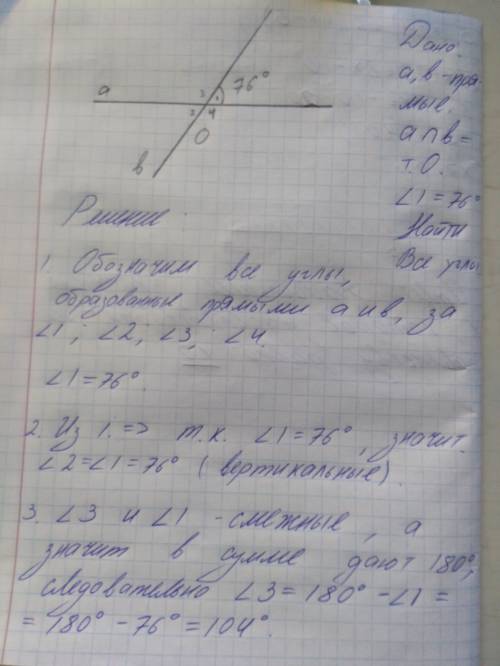 a
76°
3
1
2
4
O
в
Дано:
а, в - пря-
мые.
a∩в=
т.О.
∠1=76°
Найти
Все углы
Решение:
1. Обозначим все углы,
образованные прямыми а и в, за
∠1; ∠2; ∠3; ∠4.
∠1=76°.
2. Из 1. => т.к. ∠1=76°, значит.
∠2=∠1=76° (вертикальные).
3. ∠3 и ∠1 - смежные, а
значит в сумме дают 180°,
следовательно ∠3=180°-∠1=
=180°-76°=104°.